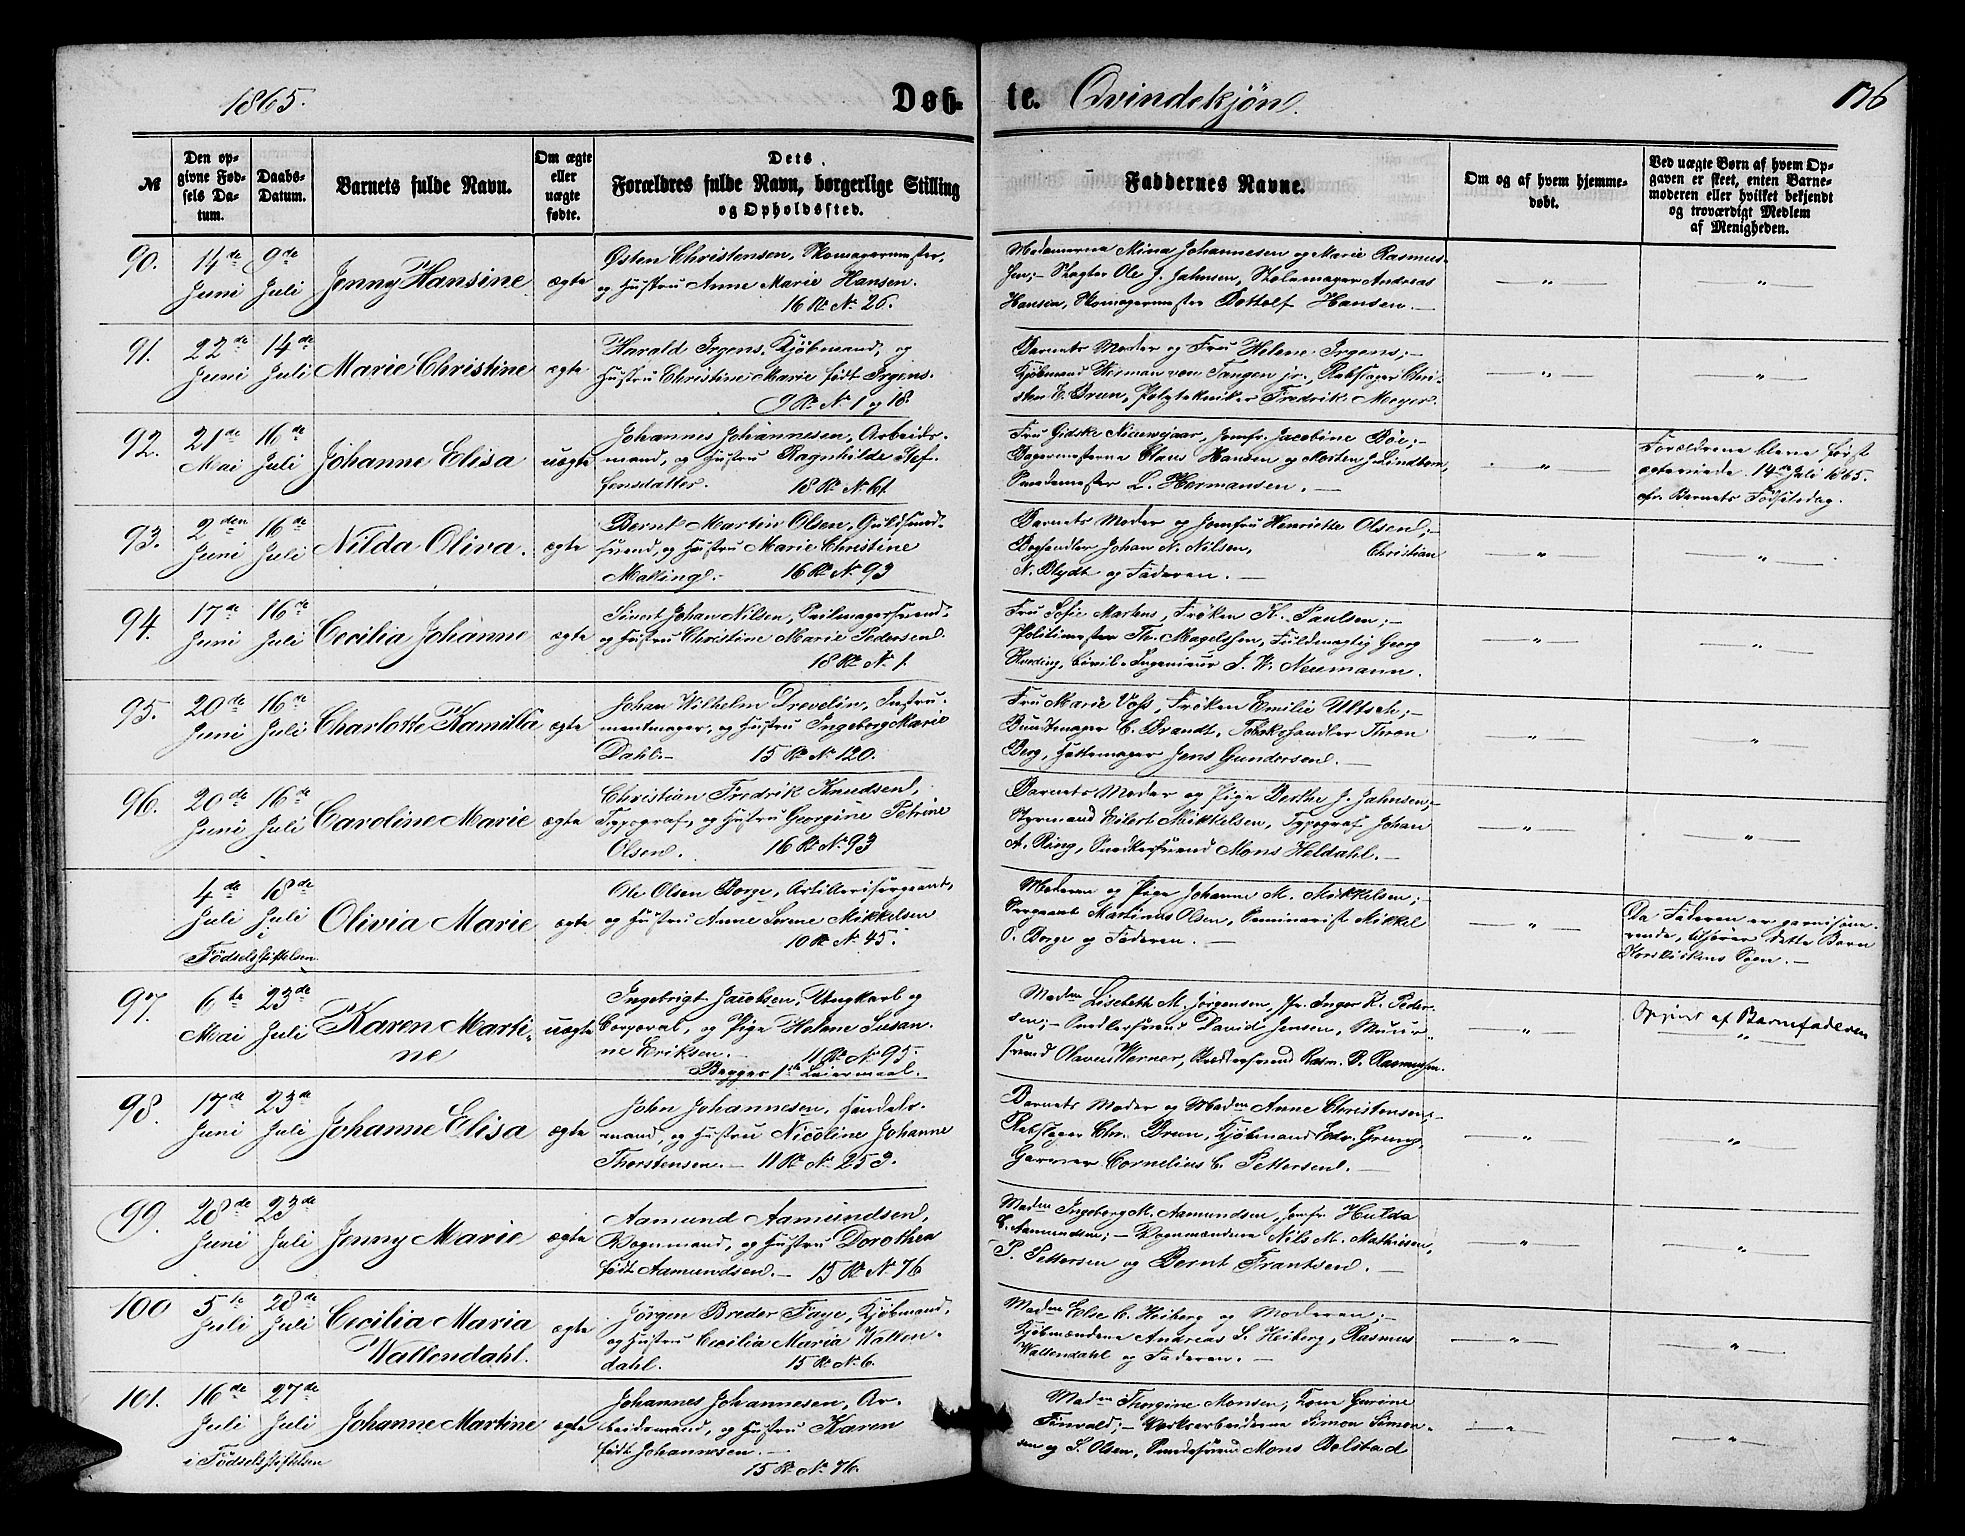 1865.
Døb-
te. Qvindekjøn.
176
№
Den op-
givne Fød-
sels Da-
tum.
Daabs-
Datum.
Barnets fulde Navn.
Om ægte
eller
uægte
fødte.
Dets
Forældres fulde Navn, borgerlige Stilling
og Opholdssted.
Faddernes Navne.
Om og af hvem hjemme-
døbt.
Ved uægte Børn af hvem Op-
gaven er skeet, enten Barne-
moderen eller hvilket bekjendt
og troværdigt Medlem
af Menigheden.
90.
14de
Juni
9de
Juli
Jenny Hansine
ægte
Østen Christensen, Skomagermester,
og Hustru Anne Marie Hansen.
16 R. No 26.
Madamerne Mina Johannesen og Marie Rasmus-
sen; – Slagter Ole J. Jahnsen, Stolemager Andreas
Hansen, Skomagermester Bottolf Hansen. –
— „ —
— „ —
91.
22de
Juni
14de
Juli
Marie Christine
ægte
Harald Irgens, Kjøbmand, og
Hustru Christine Marie født Irgens.
9 R. No 1 og 18
Barnets Moder og Fru Helene Irgens; –
Kjøbmand Herman von Tangen jr., Rebslager Chri-
sten E. Bruun, Polytekniker Fredrik Meyer.
— „ —
— „ —
92.
21de
Mai
16de
Juli
Johanne Elisa
uægte
Johannes Johannesen, Arbeids-
mand, og Hustru Ragnhilde Stef-
fensdatter. 18 R. No 61.
Fru Gidske Nieuwejaar, Jomfr. Jacobine Bøe; –
Bagermesterne Claus Hansen og Morten J. Lindborn,
Smedemester L. Hermansen. –
— „ —
Forældrene bleve først
ægteviede 14de Juli 1865.
efr. Barnets Fødselsdag.
93.
2den
Juni
16de
Juli
Nilda Oliva.
ægte
Bernt Martin Olsen, Guldsmed-
svend, og Hustru Marie Christine
Malling. – 16 R. No 93
Barnets Moder og Jomfru Henriette Olsen; –
Boghandler Johan N. Nilsen, Christian
N. Blydt og Faderen. –
— „ —
„
94.
17de
Juni
16de
Juli
Cecilia Johanne
ægte
Sivert Johan Nilsen, Seilmagersvend,
og Hustru Christine Marie Pedersen.
18 R. No 1.
Fru Sofie Martens, Frøken N. Paulsen; –
Politimester Th. Magelssen, Fuldmægtig Georg
Harding, Civil-Ingenieur J. W. Neumann.
— „ —
— „ —
95.
20de
Juni
16de
Juli
Charlotte Kamilla
ægte
Johan Wilhelm Drevelin, Instru-
mentmager, og Hustru Ingeborg Marie
Dahl. – 15 R. No 120.
Fru Marie Voss, Frøken Emilie Ultsch; –
Buntmager C. Brandt, Tobakshandler Thron
Berg, Hattemager Jens Gundersen. –
— „ —
— „ —
96.
20de
Juni
16de
Juli
Caroline Marie
ægte
Christian Fredrik Knudsen,
Typograf, og Hustru Georgine Petrine
Olsen. 16 R. No 93
Barnets Moder og Pige Berthe J. Jahnsen, –
Styrmand Eilert Mikkelsen, Typograf Johan
A. Ring, Snedkersvend Mons Heldahl. –
— „ —
— „ —
4de
Juli
18de
Juli
i
Fødselsstiftelsen
Olivia Marie
ægte
Ole Olsen Borge, Artillerisergeant,
og Hustru Anne Serene Mikkelsen
10 R. No 45.
Moderen og Pige Johanne M. Mikkelsen; –
Sergeant Martinus Olsen, Seminarist Mikkel
O. Borge og Faderen. –
— „ —
Da Faderen er garnisone-
rende, tilhører dette Barn
Korskirkens Sogn. –
97.
6te
Mai
23de
Juli
Karen Marti-
ne
uægte
Ingebrigt Jacobsen, Ungkarl og
Corporal, og Pige Helene Susan-
ne Eriksen. – 11 R. No 95.
Begges 1ste Leiermaal.
Madm Lisebeth M. Jørgensen, Jfr. Inger K. Peder-
sen; – Snedkersvend David Jensen, Muur-
svend Olavus Werner, Bøddkersvend Rasm. D. Rasmussen.
— „ —
Opgivet af Barnefaderen
„
98.
17de
Juni
23de
Juli
Johanne Elisa
ægte
John Johannesen, Handels-
mand, og Hustru Nicoline Johanne
Thorstensen. – 11 R. No 253.
Barnets Moder og Madm Anne Christensen; –
Rebslager Chr. Bruun, Kjøbmand Edv. Grung,
Garver Cornelius C. Pettersen. –
— „ —
„
99.
28de
Juni
23de
Juli
Jenny Marie
ægte
Aamund Aamundsen,
Vognmand, og Hustru Dorothea
født Aamundsen. – 15 R. No 76
Madm Ingeborg M. Aamundsen, Jomfr. Hulda
C. Aamundsen; – Vognmændene Nils M. Mathiesen,
P. Pettersen og Bernt Frantsen. –
— „ —
— „ —
100
5te
Juli
28de
Juli
Cecilia Maria
Wallendahl.
ægte
Jørgen Breder Faye, Kjøbmand,
og Hustru Cecilia Maria Wallen-
dahl. 15 R. No 6.
Madm Else C. Heiberg og Moderen; –
Kjøbmændene Andreas S. Heiberg, Rasmus
Wallendahl og Faderen. –
— „ —
— „ —
101.
16de
Juli
27de
Juli
i Fødselsstiftelsen
Johanne Martine
ægte
Johannes Johannesen, Ar-
beidsmand, og Hustru Karen
født Johannesen. –
15 R. No 76.
Madm Thorgine Monsen, Kone Gurine
Finvald; – Værksarbeiderne Simon Simon-
sen og S. Olsen, Smedesvend Mons Bolstad
— „ —
— „ —